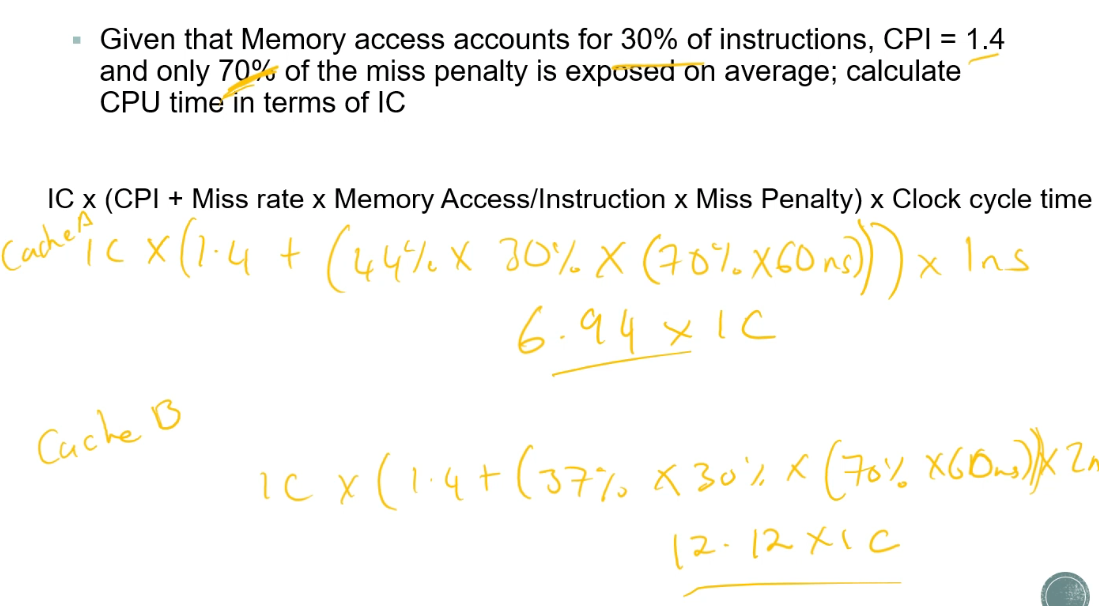 Given that Memory access accounts for 30% of instructions, CPI = 1.4
and only 70% of the miss penalty is exposed on average; calculate
CPU time in terms of IC
IC x (CPI + Miss rate x Memory Access/Instruction x Miss Penalty) x Clock cycle time
Cache A IC x (1.4 + (44% x 30% x (70% x 60ns))) x 1ns
6.94 x IC
Cache B
IC x (1.4 + (37% x 30% x (70% x 60ns)) x 2n
12.12 x IC